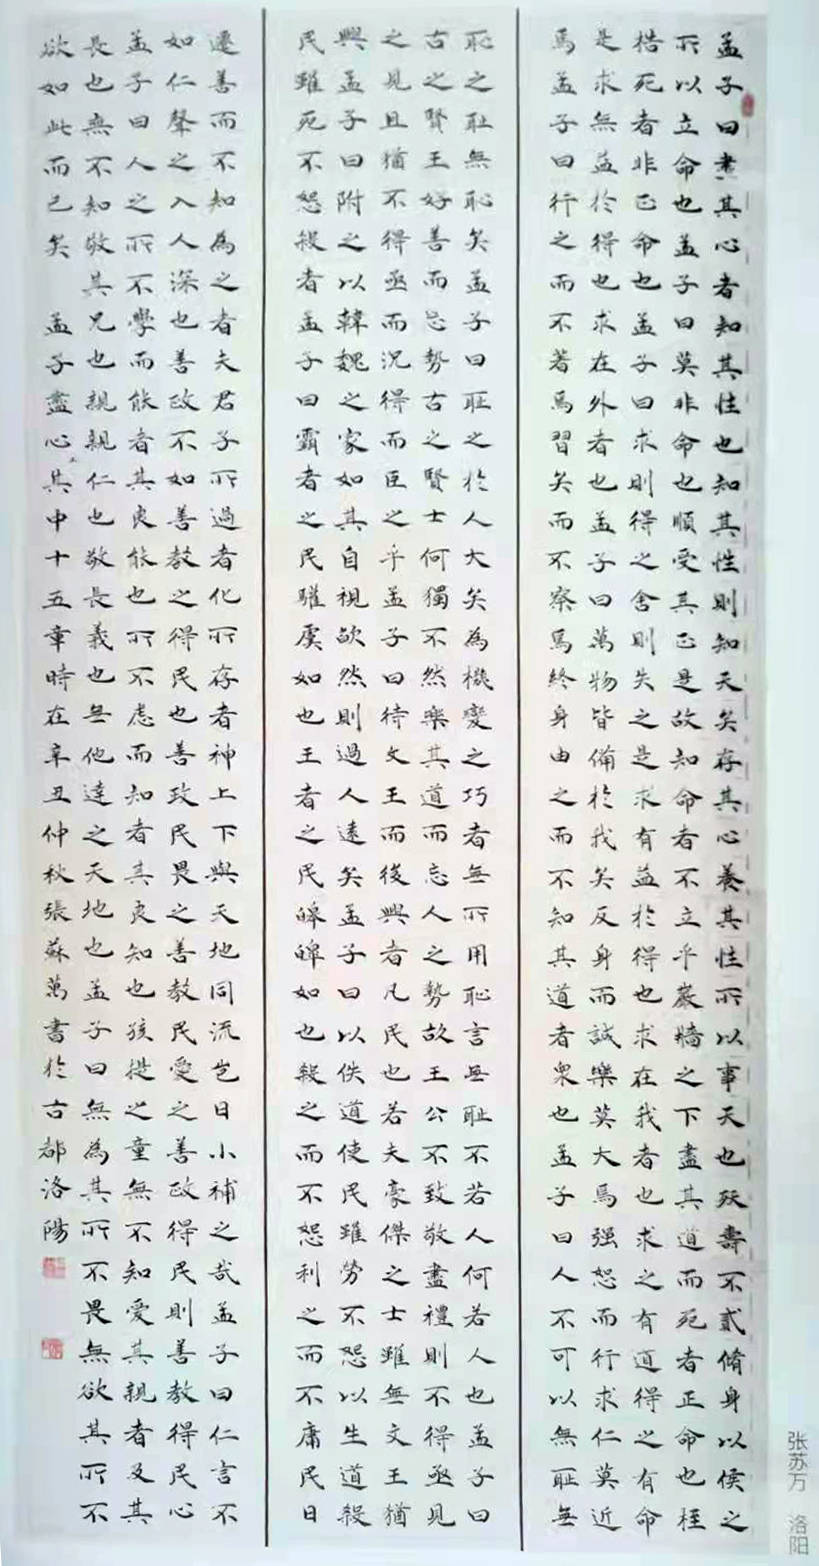 孟子曰盡其心者知其性也知其性則知天矣存其心養其性所以事天也殀壽不貳脩身以俟之
所以立命也孟子曰莫非命也順受其正是故知命者不立乎巖墻之下盡其道而死者正命也桎
梏死者非正命也孟子曰求則得之舍則失之是求有益於得也求在我者也求之有道得之有命
是求無益於得也求在外者也孟子曰萬物皆備於我矣反身而誠樂莫大焉强恕而行求仁莫近
焉孟子曰行之而不著焉習矣而不察焉終身由之而不知其道者衆也孟子曰人不可以無恥無
恥之恥無恥矣孟子曰恥之於人大矣為機變之巧者無所用恥言無恥不若人何若人也孟子曰
古之賢王好善而忘勢古之賢士何獨不然樂其道而忘人之勢故王公不致敬盡禮則不得亟見
之見且猶不得亟而況得而臣之乎孟子曰待文王而後興者凡民也若夫豪傑之士雖無文王猶
興孟子曰附之以韓魏之家如其自視欿然則過人遠矣孟子曰以佚道使民雖勞不怨以生道殺
民雖死不怨殺者孟子曰霸者之民驩虞如也王者之民皞皞如也殺之而不怨利之而不庸民日
遷善而不知為之者夫君子所過者化所存者神上下與天地同流豈曰小補之哉孟子曰仁言不
如仁聲之入人深也善政不如善教之得民也善政民畏之善教民愛之善政得民則善教得民心
孟子曰人之所不學而能者其良能也所不慮而知者其良知也孩提之童無不知愛其親者及其
長也無不知敬其兄也親親仁也敬長義也無他達之天地也孟子曰無為其所不畏無欲其所不
欲如此而已矣 孟子盡心其中十五章時在辛丑仲秋張蘇萬書於古都洛陽
张苏万 洛阳